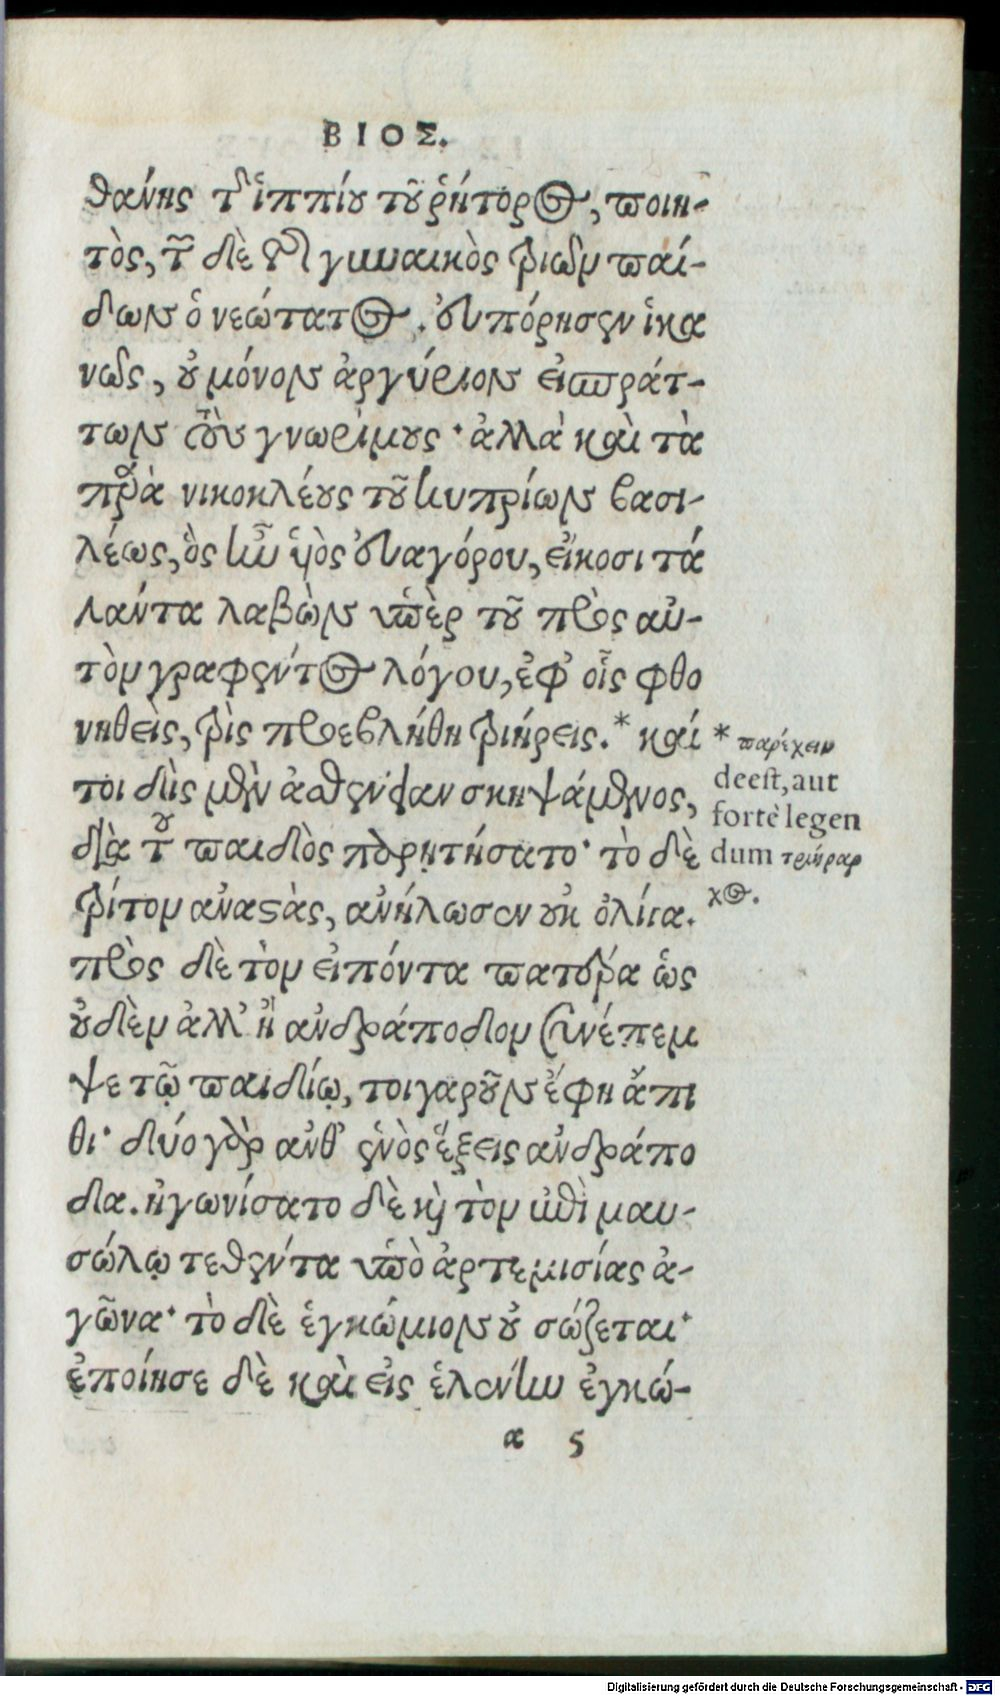 ΒΙΟΣ.
θάνης τ͂ ἱππίου τοῦ ῥήτορος, ποιη-
τὸς, τ͂ δὲ γυναικὸς τριῶν παί-
δων ὁ νεώτατος. εὐπόρησεν ἱκα
νῶς, οὐ μόνον ἀργύριον εἰσπράτ-
των τοὺς γνωρίμους· ἀλλὰ καὶ τὰ
παρὰ νικοκλέους τοῦ κυπρίων βασι-
λέως, ὃς ἦν ὑὸς εὐαγόρου, εἴκοσι τά
λαντα λαβὼν ὑπὲρ τοῦ πρὸς αὐ-
τὸν γραφέντος λόγου, ἐφ᾽ οἷς φθο
νηθεὶς, τρὶς προεβλήθη τριήρεις.* καί
τοι δὶς μὲν ἀσθένειαν σκηψάμενος,
διὰ τοῦ παιδὸς παρῃτήσατο· τὸ δὲ
τρίτον ἀναστὰς, ἀνήλωσεν οὐκ ὀλίγα.
πρὸς δὲ τὸν εἰπόντα πατέρα ὡς
οὐδὲν ἀλλ᾽ ἢ ἀνδράποδον συνέπεμ
ψε τῷ παιδίῳ, τοιγαροῦν ἔφη ἄπι
θι· δύο γὰρ ἀνθ᾽ ἑνὸς ἕξεις ἀνδράπο
δα. ἠγωνίσατο δὲ καὶ τὸν ἐπὶ μαυ-
σώλῳ τεθέντα ὑπὸ ἀρτεμισίας ἀ-
γῶνα· τὸ δὲ ἐγκώμιον οὐ σώζεται·
ἐποίησε δὲ καὶ εἰς ἑλένην ἐγκώ-
α 5
* παρέχειν
deest, aut
fortè legen
dum τριήραρ
χος.
Digitalisierung gefördert durch die Deutsche Forschungsgemeinschaft - DFG